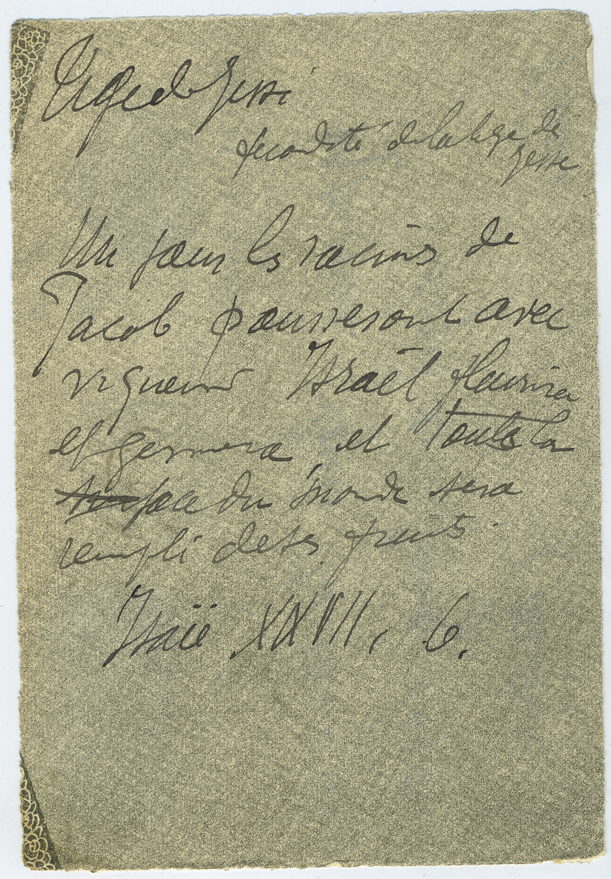 Tige de Jessé
fécondité de la tige de
Jessé
Un jour les racines de
Jacob pousseront avec
vigueur Israël fleurira
et germera et toute la
surface du monde sera
rempli de ses fruits.
Isaïe XXVII, 6.